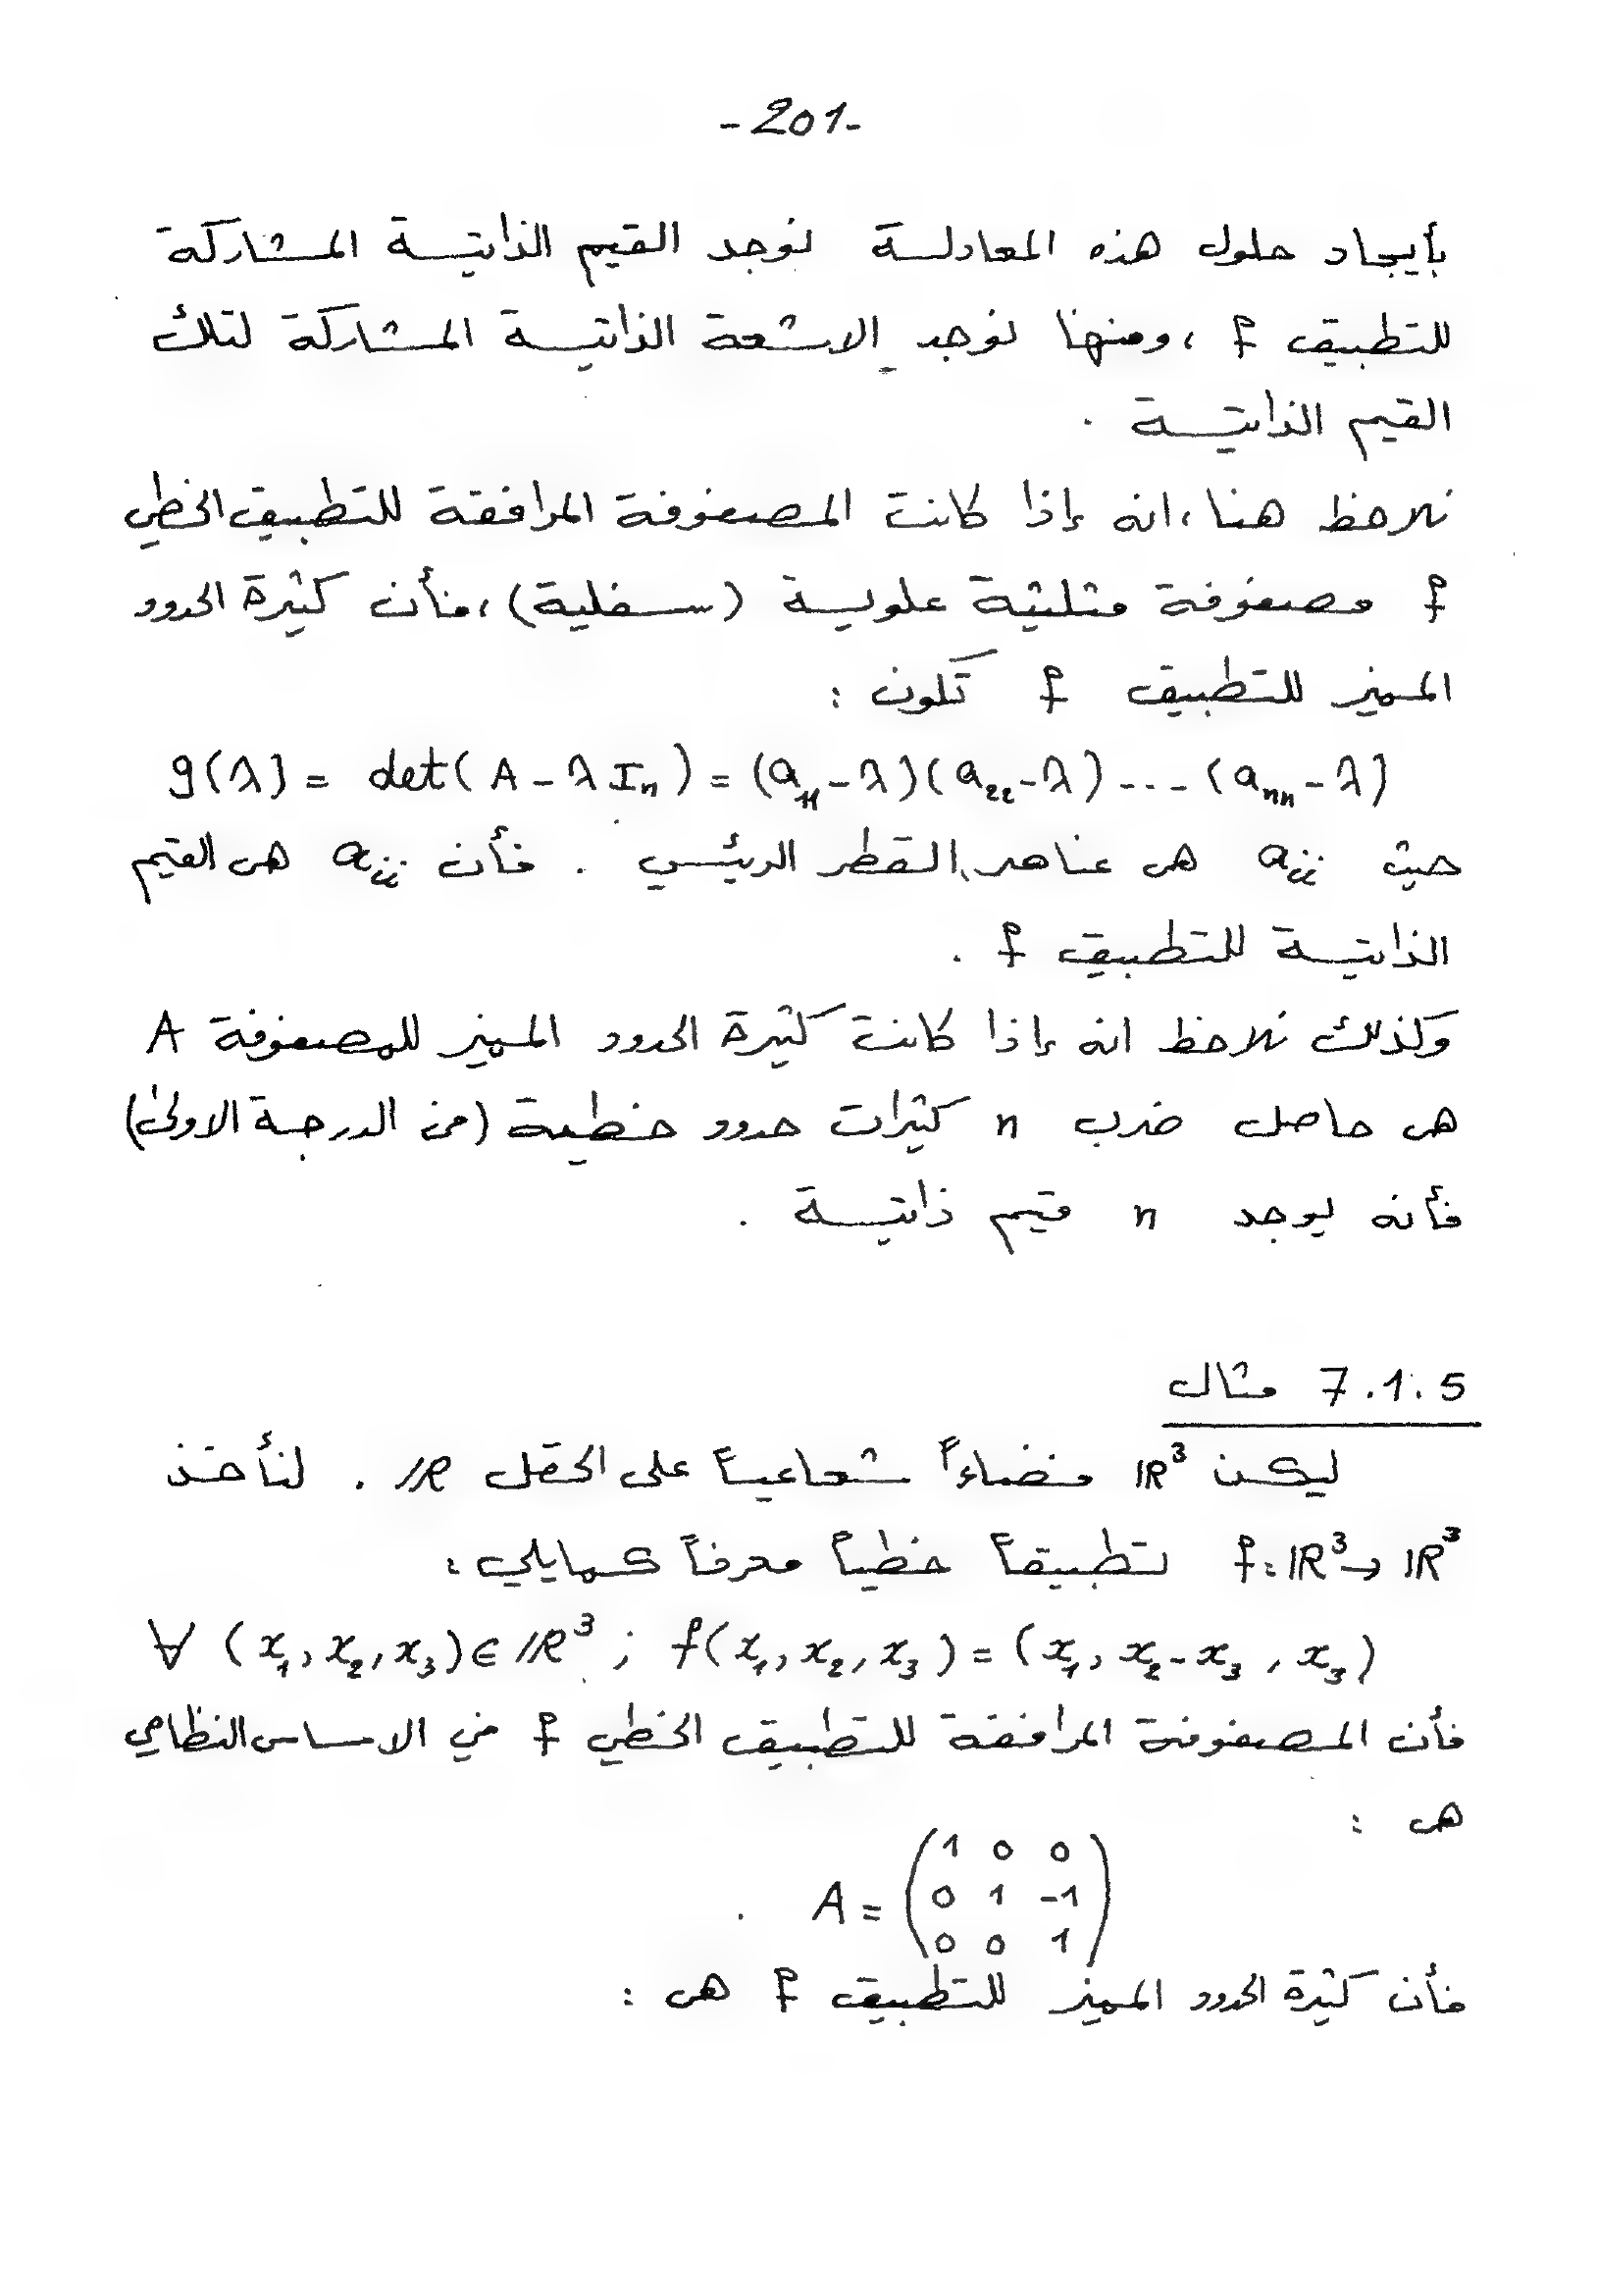 -201-
بأيجاد حلول هذه المعادلة نوجد القيم الذاتية المشاركة
للتطبيق f ، ومنها نوجد الاشعة الذاتية المشاركة لتلك
القيم الذاتية .
نلاحظ هنا، انه إذا كانت المصفوفة المرافقة للتطبيق الخطي
f مصفوفة مثلثية علوية (سفلية)، فأن كثيرة الحدود
المميز للتطبيق f تكون :
g(λ) = det(A - λ Iₙ) = (a₁₁ - λ)(a₂₂ - λ) --- (aₙₙ - λ)
حيث aᵢᵢ هي عناصر القطر الرئيسي . فأن aᵢᵢ هي القيم
الذاتية للتطبيق f .
وكذلك نلاحظ انه إذا كانت كثيرة الحدود المميز للمصفوفة A
هي حاصل ضرب n كثيرات حدود خطية (من الدرجة الاولى)
فأنه يوجد n قيم ذاتية .
7.1.5 مثال
ليكن ℝ³ فضاءاً شعاعياً على الحقل ℝ . لنأخذ
f: ℝ³ → ℝ³ تطبيقاً خطياً معرفاً كمايلي :
∀ (x₁, x₂, x₃) ∈ ℝ³ ; f(x₁, x₂, x₃) = (x₁, x₂ - x₃, x₃)
فأن المصفوفة المرافقة للتطبيق الخطي f في الاساس النظامي
هي :
A = (1 0 0
0 1 -1
0 0 1) .
فأن كثيرة الحدود المميز للتطبيق f هي :